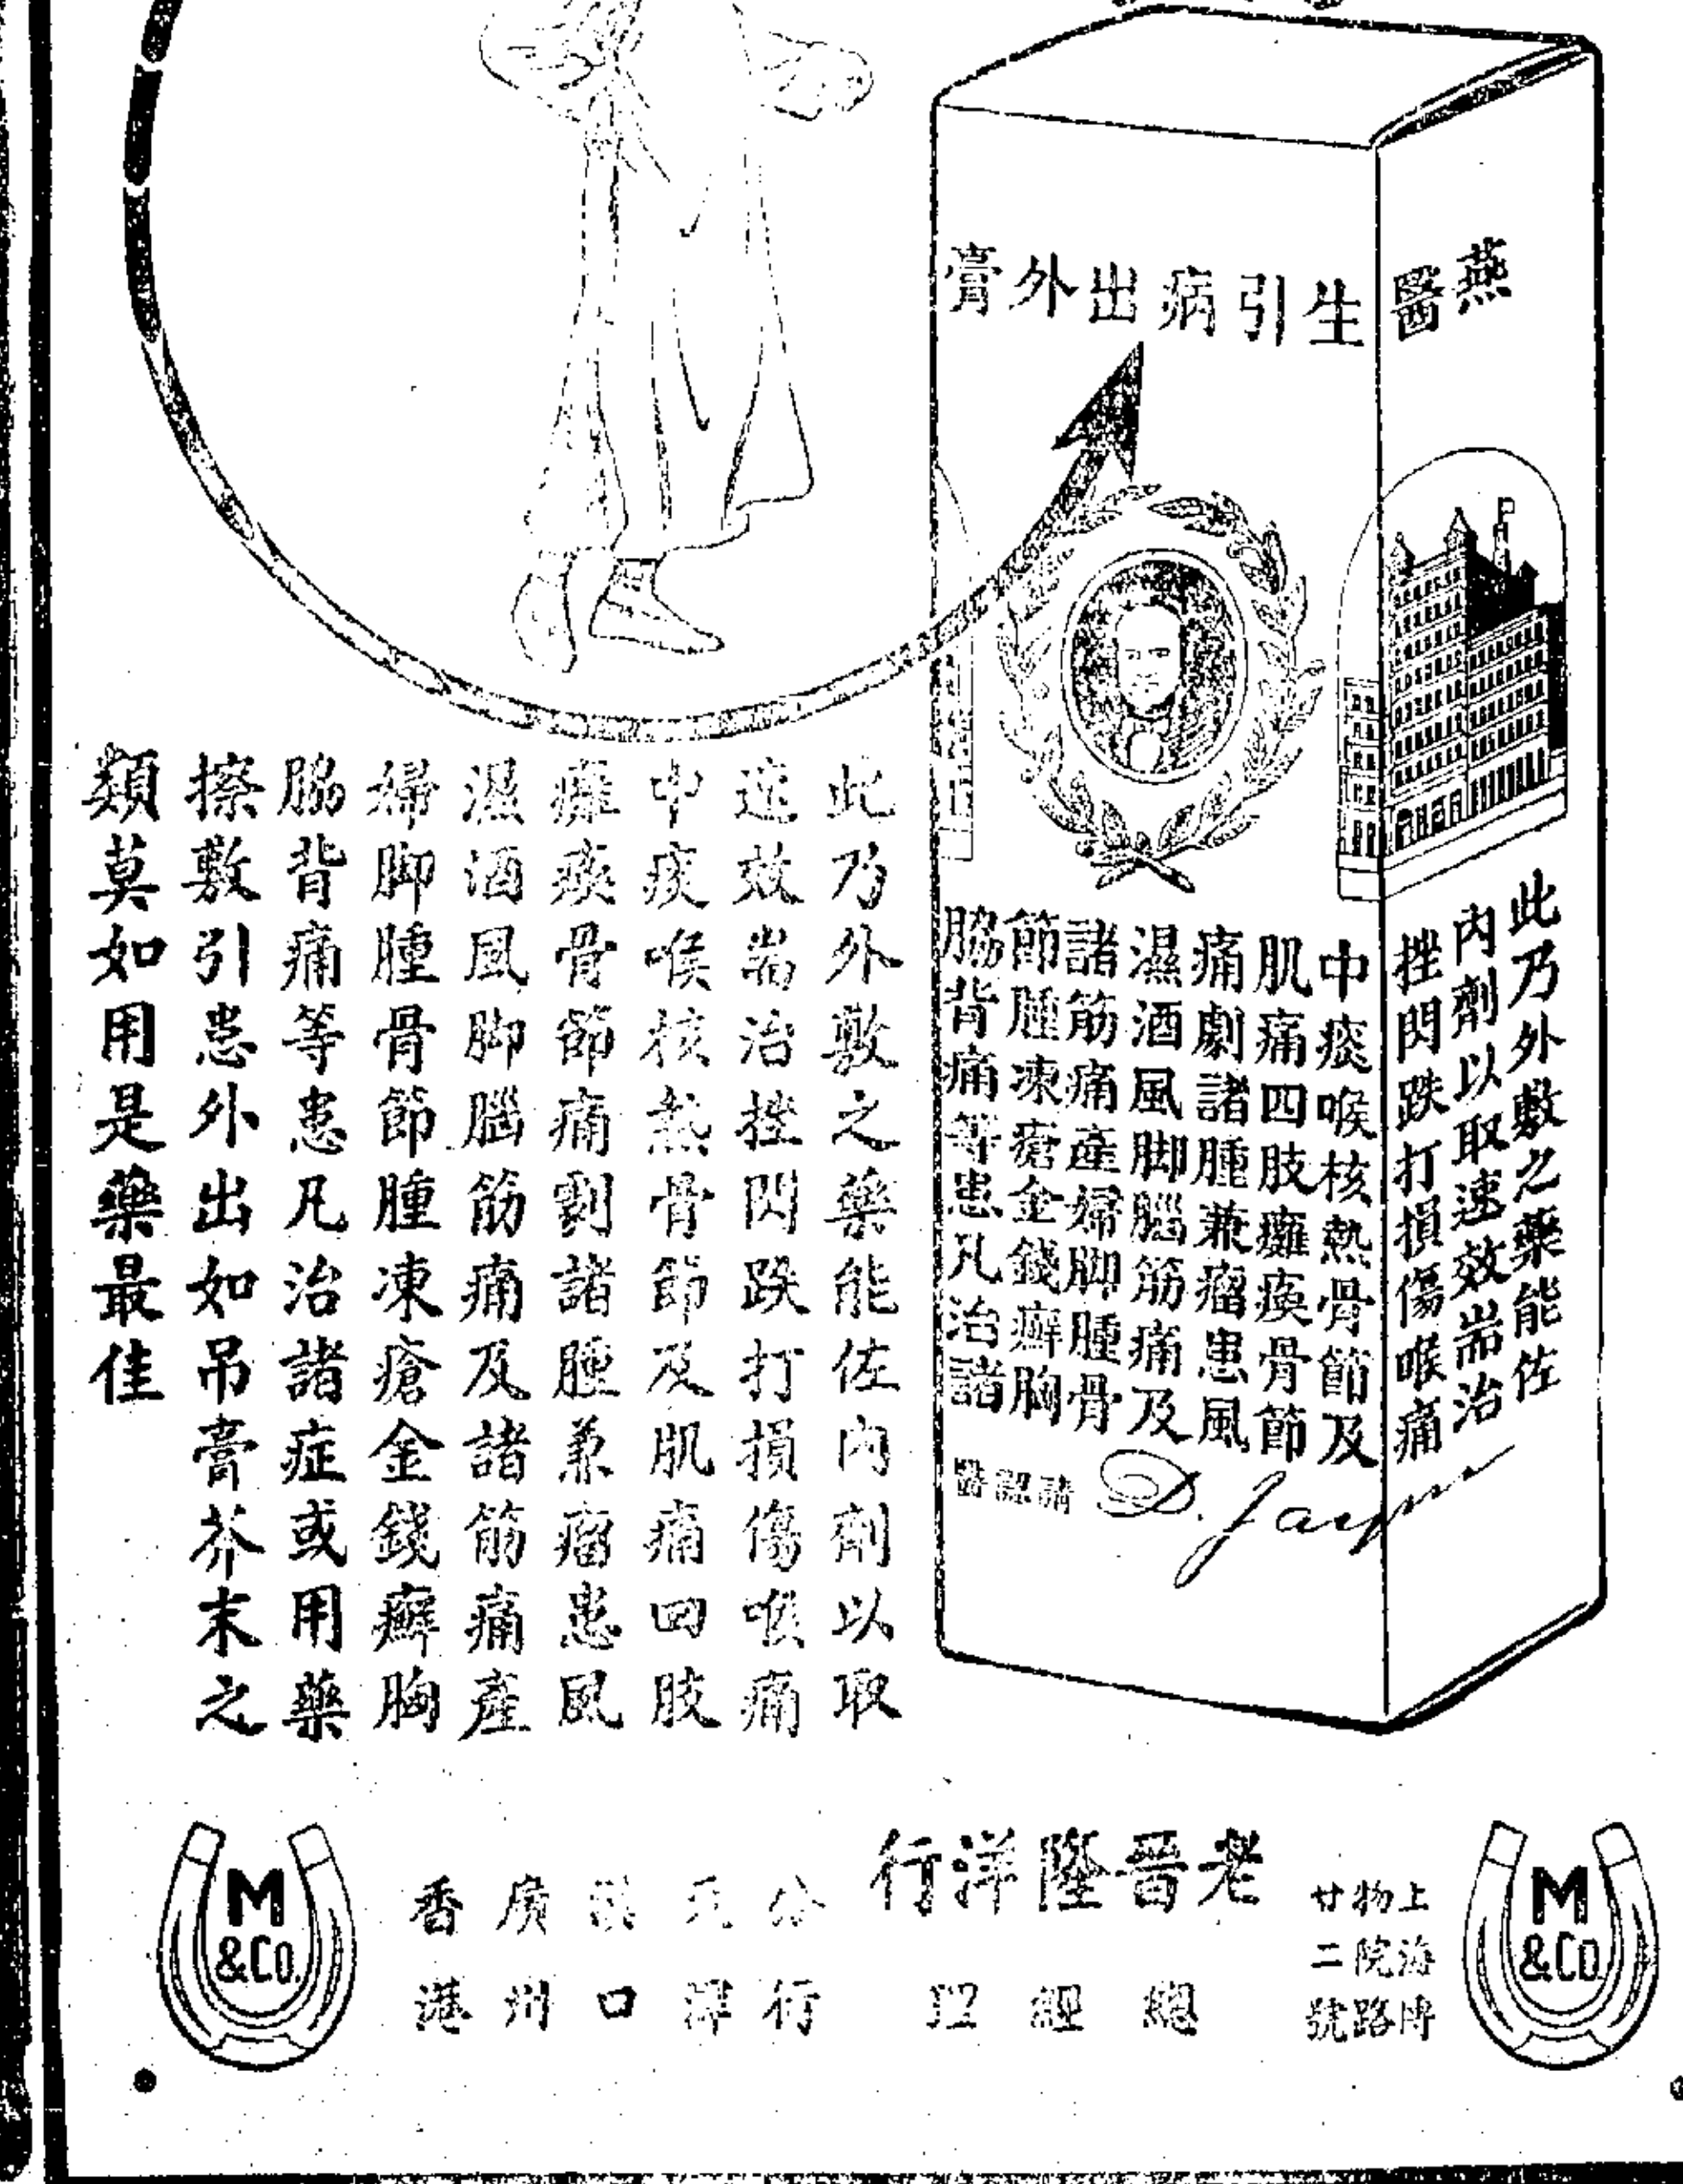 燕醫生引病出外膏
此乃外敷之藥能佐
內劑以取速效耑治
挫閃跌打損傷喉痛
中痰喉核熱骨節及
肌痛四肢癱瘓骨節
痛劇諸腫兼瘤患風
濕酒風脚腦筋痛及
諸筋痛產婦脚腫骨
節腫凍瘡金錢癬胸
脇背痛等患凡治諸
請認醫
D. Jayne
此乃外敷之藥能佐內劑以取
速效耑治挫閃跌打損傷喉痛
中痰喉核熱骨節及肌痛四肢
癱瘓骨節痛劇諸腫兼瘤患風
濕酒風脚腦筋痛及諸筋痛產
婦脚腫骨節腫凍瘡金錢癬胸
脇背痛等患凡治諸症或用藥
擦敷引患外出如吊膏芥末之
類莫如用是藥最佳
M
&CO.
上海博
物院路
廿二號
老晉隆洋行
總經理
分行
天津
漢口
廣州
香港
M
&CO.